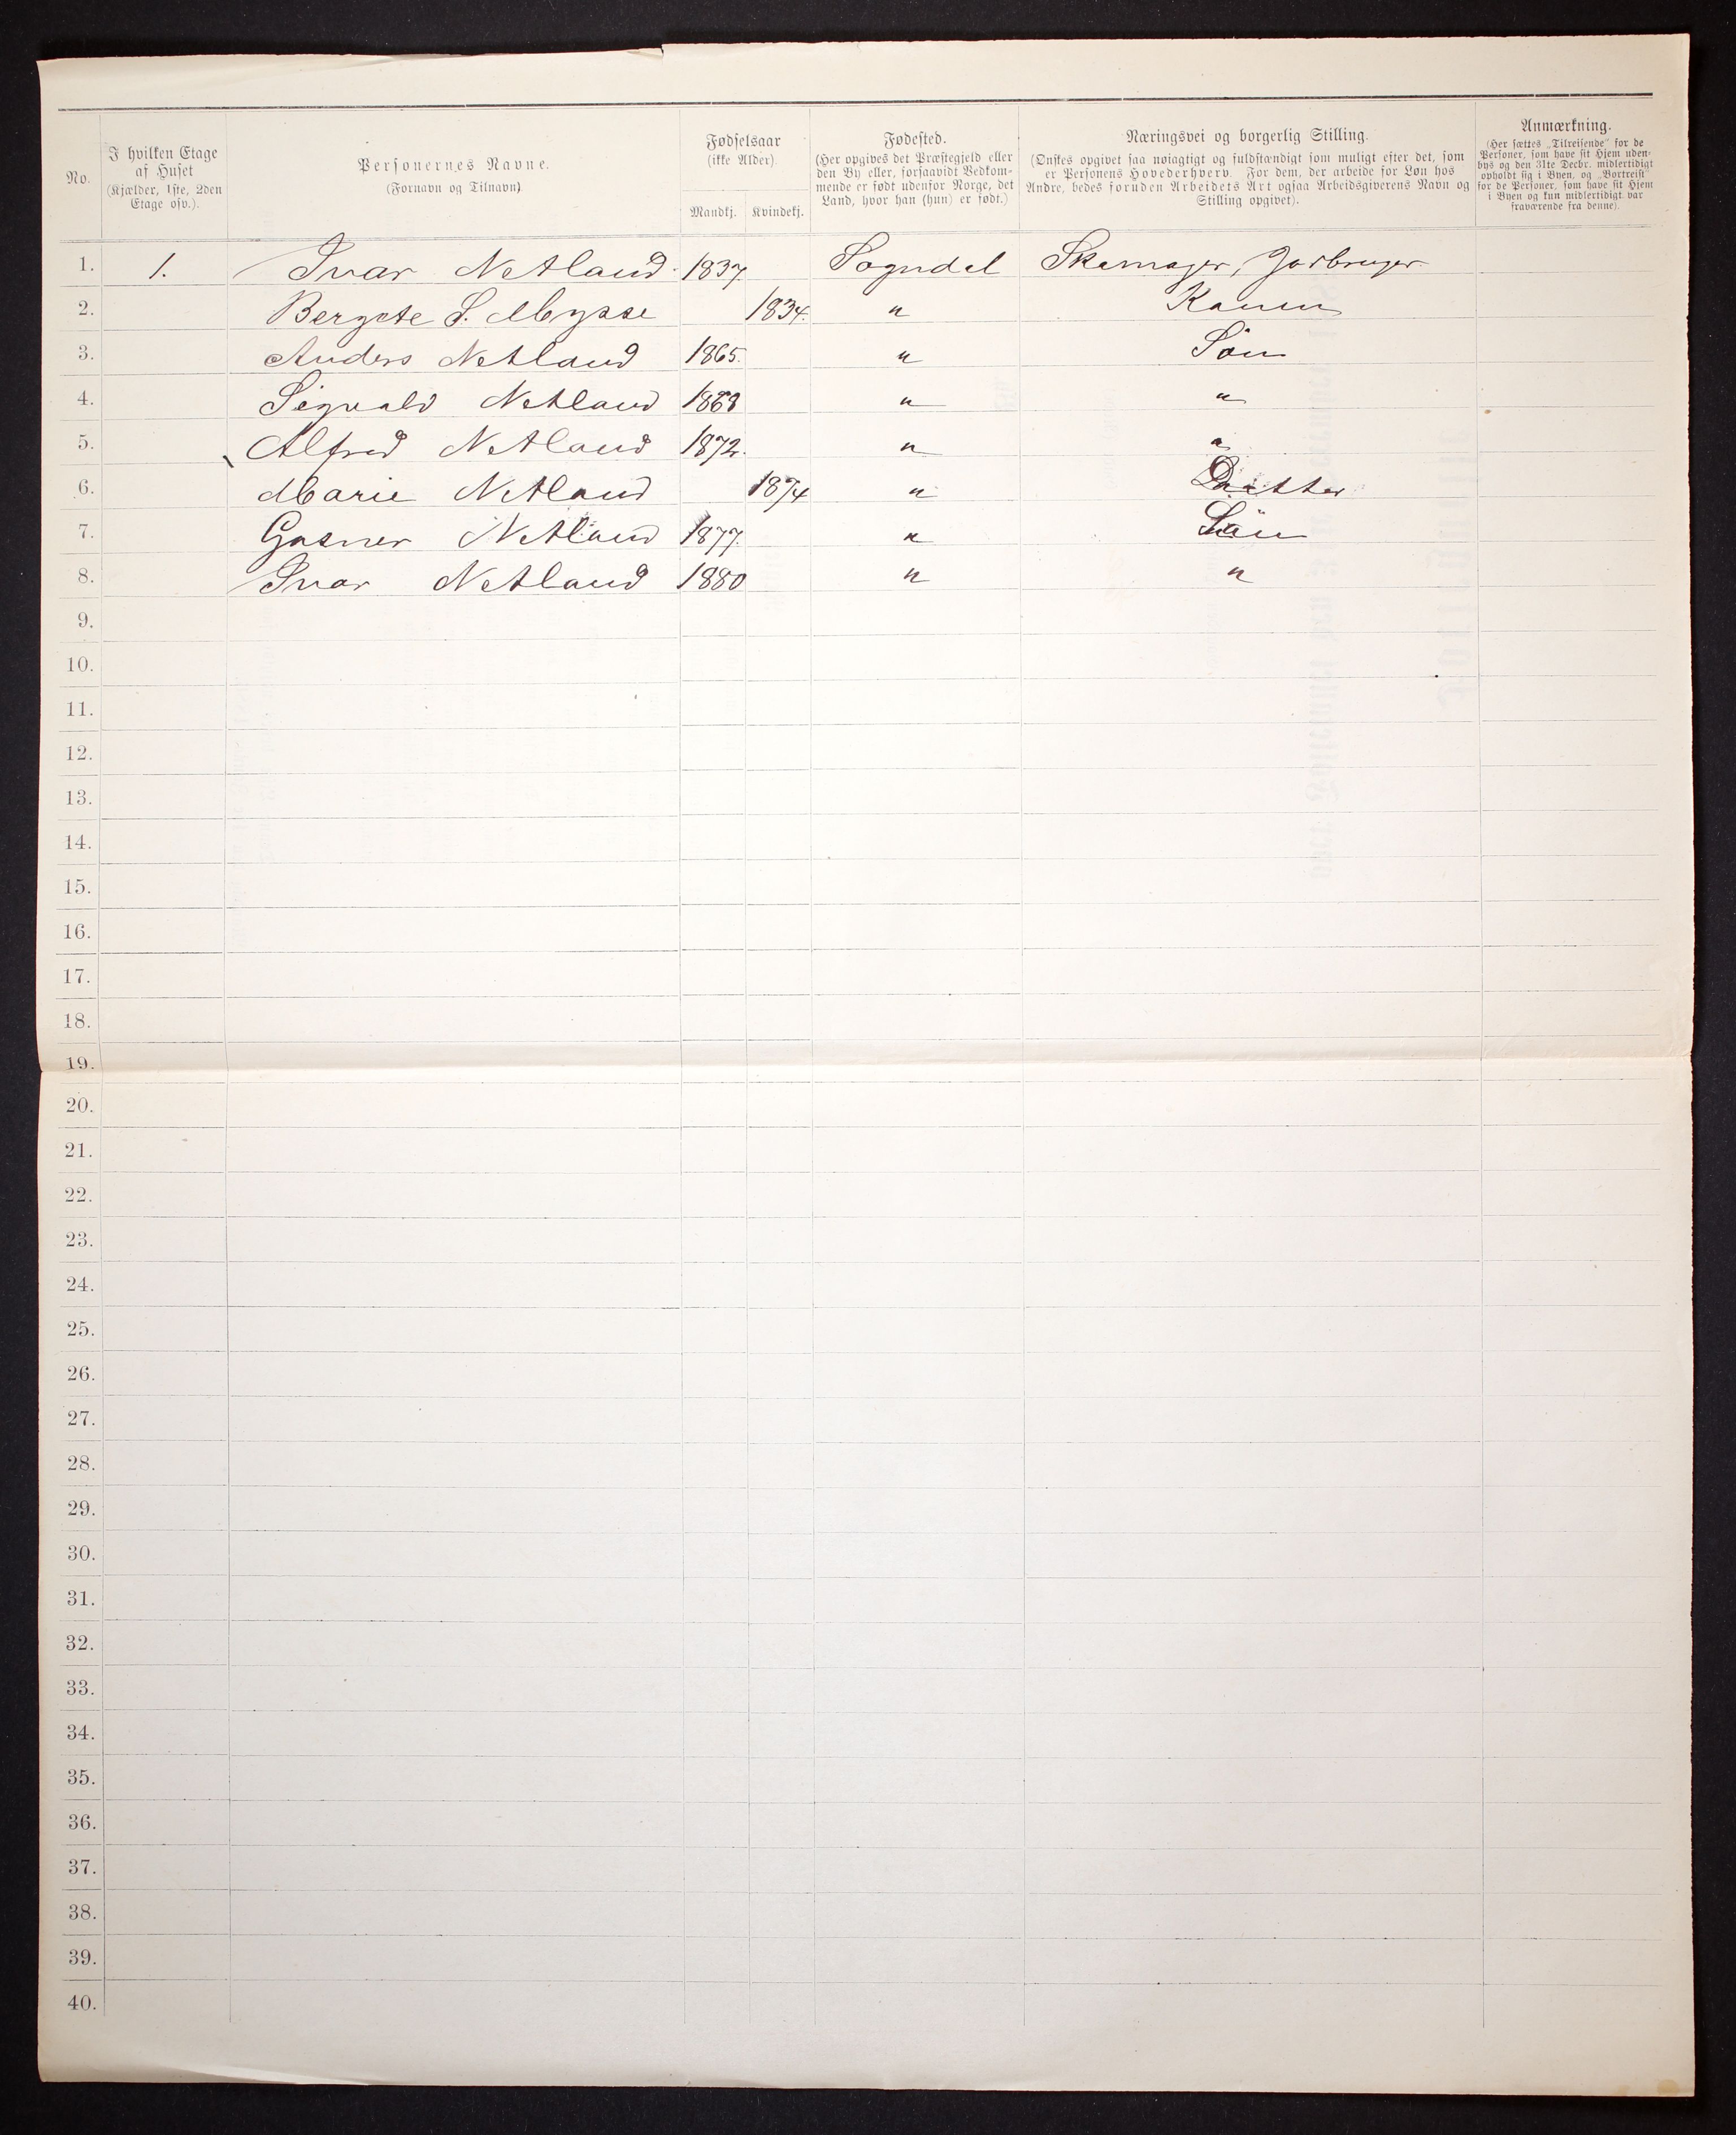 No.
I hvilken Etage
af Huset
(Kjælder, 1ste, 2den
Etage osv.).
Personernes Navne.
(Fornavn og Tilnavn)
Fødselsaar
(ikke Alder)
Mandkj. Kvindekj.
Fødested.
(Her opgives det Præstegjeld eller
den By eller, forsaavidt Vedkom-
mende er født udenfor Norge, det
Land, hvor han (hun) er født.)
Næringsvei og borgerlig Stilling.
(Ønskes opgivet saa nøiagtigt og fuldstændigt som muligt efter det, som
er Personens Hovederhverv. For dem, der arbeide for Løn hos
Andre, bedes foruden Arbeidets Art ogsaa Arbeidsgiverens Navn og
Stilling opgivet).
Anmærkning.
(Her sættes „Tilreisende“ for de
Personer, som have sit Hjem uden-
bys og den 31te Decbr. midlertidigt
opholdt sig i Byen, og „Bortreist“
for de Personer, som have sit Hjem
i Byen og kun midlertidigt var
fraværende fra denne).
1. 1. Ivar Netland. 1837. Sogndal Skomager, Jorbruger.
2. Bergete S. Mysse 1834. " Konen
3. Anders Netland 1865. " Søn
4. Sigvald Netland 1868 " "
5. Alfred Netland 1872. " "
6. Marie Netland 1874 " Datter
7. Gasner Netland 1877. " Søn
8. Ivar Netland 1880 " "
9.
10.
11.
12.
13.
14.
15.
16.
17.
18.
19.
20.
21.
22.
23.
24.
25.
26.
27.
28.
29.
30.
31.
32.
33.
34.
35.
36.
37.
38.
39.
40.